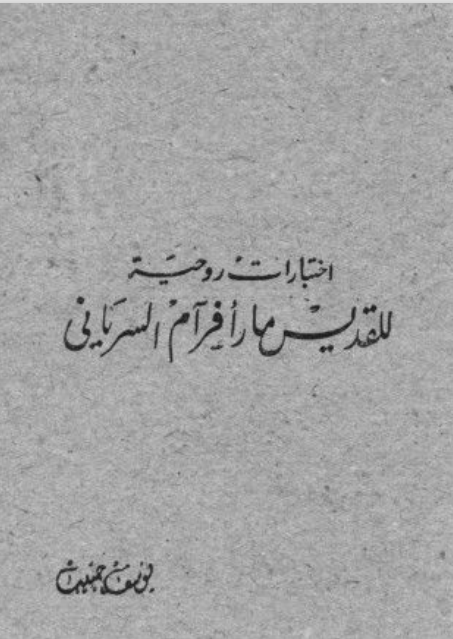 اختبارات روحيّة
للقديس مار أفرآم السرياني
يوسف حبيب